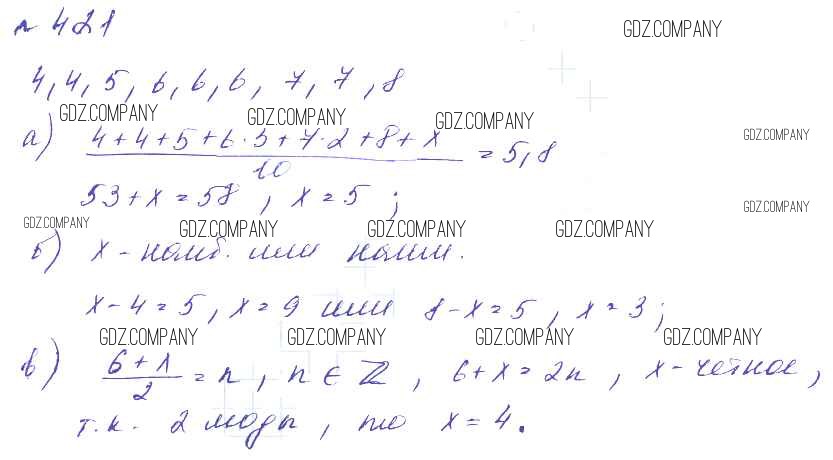 № 421
GDZ.COMPANY
4, 4, 5, 6, 6, 6, 7, 7, 8
GDZ.COMPANY GDZ.COMPANY GDZ.COMPANY GDZ.COMPANY
а) (4+4+5+6·3+7·2+8+x)/10 = 5,8
53+x=58, x=5;
GDZ.COMPANY
GDZ.COMPANY GDZ.COMPANY GDZ.COMPANY GDZ.COMPANY
б) x – наиб. или наим.
x–4=5, x=9 или 8–x=5, x=3;
GDZ.COMPANY GDZ.COMPANY GDZ.COMPANY GDZ.COMPANY
в) (6+x)/2 = n, n ∈ Z, 6+x=2n, x – четное,
т.к. 2 моды, то x=4.